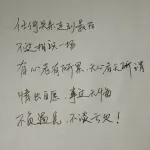 任何关系走到最后
不过相识一场
有心者有所累 无心者无所谓
情出自愿 事过无悔
不负遇见 不谈亏欠！